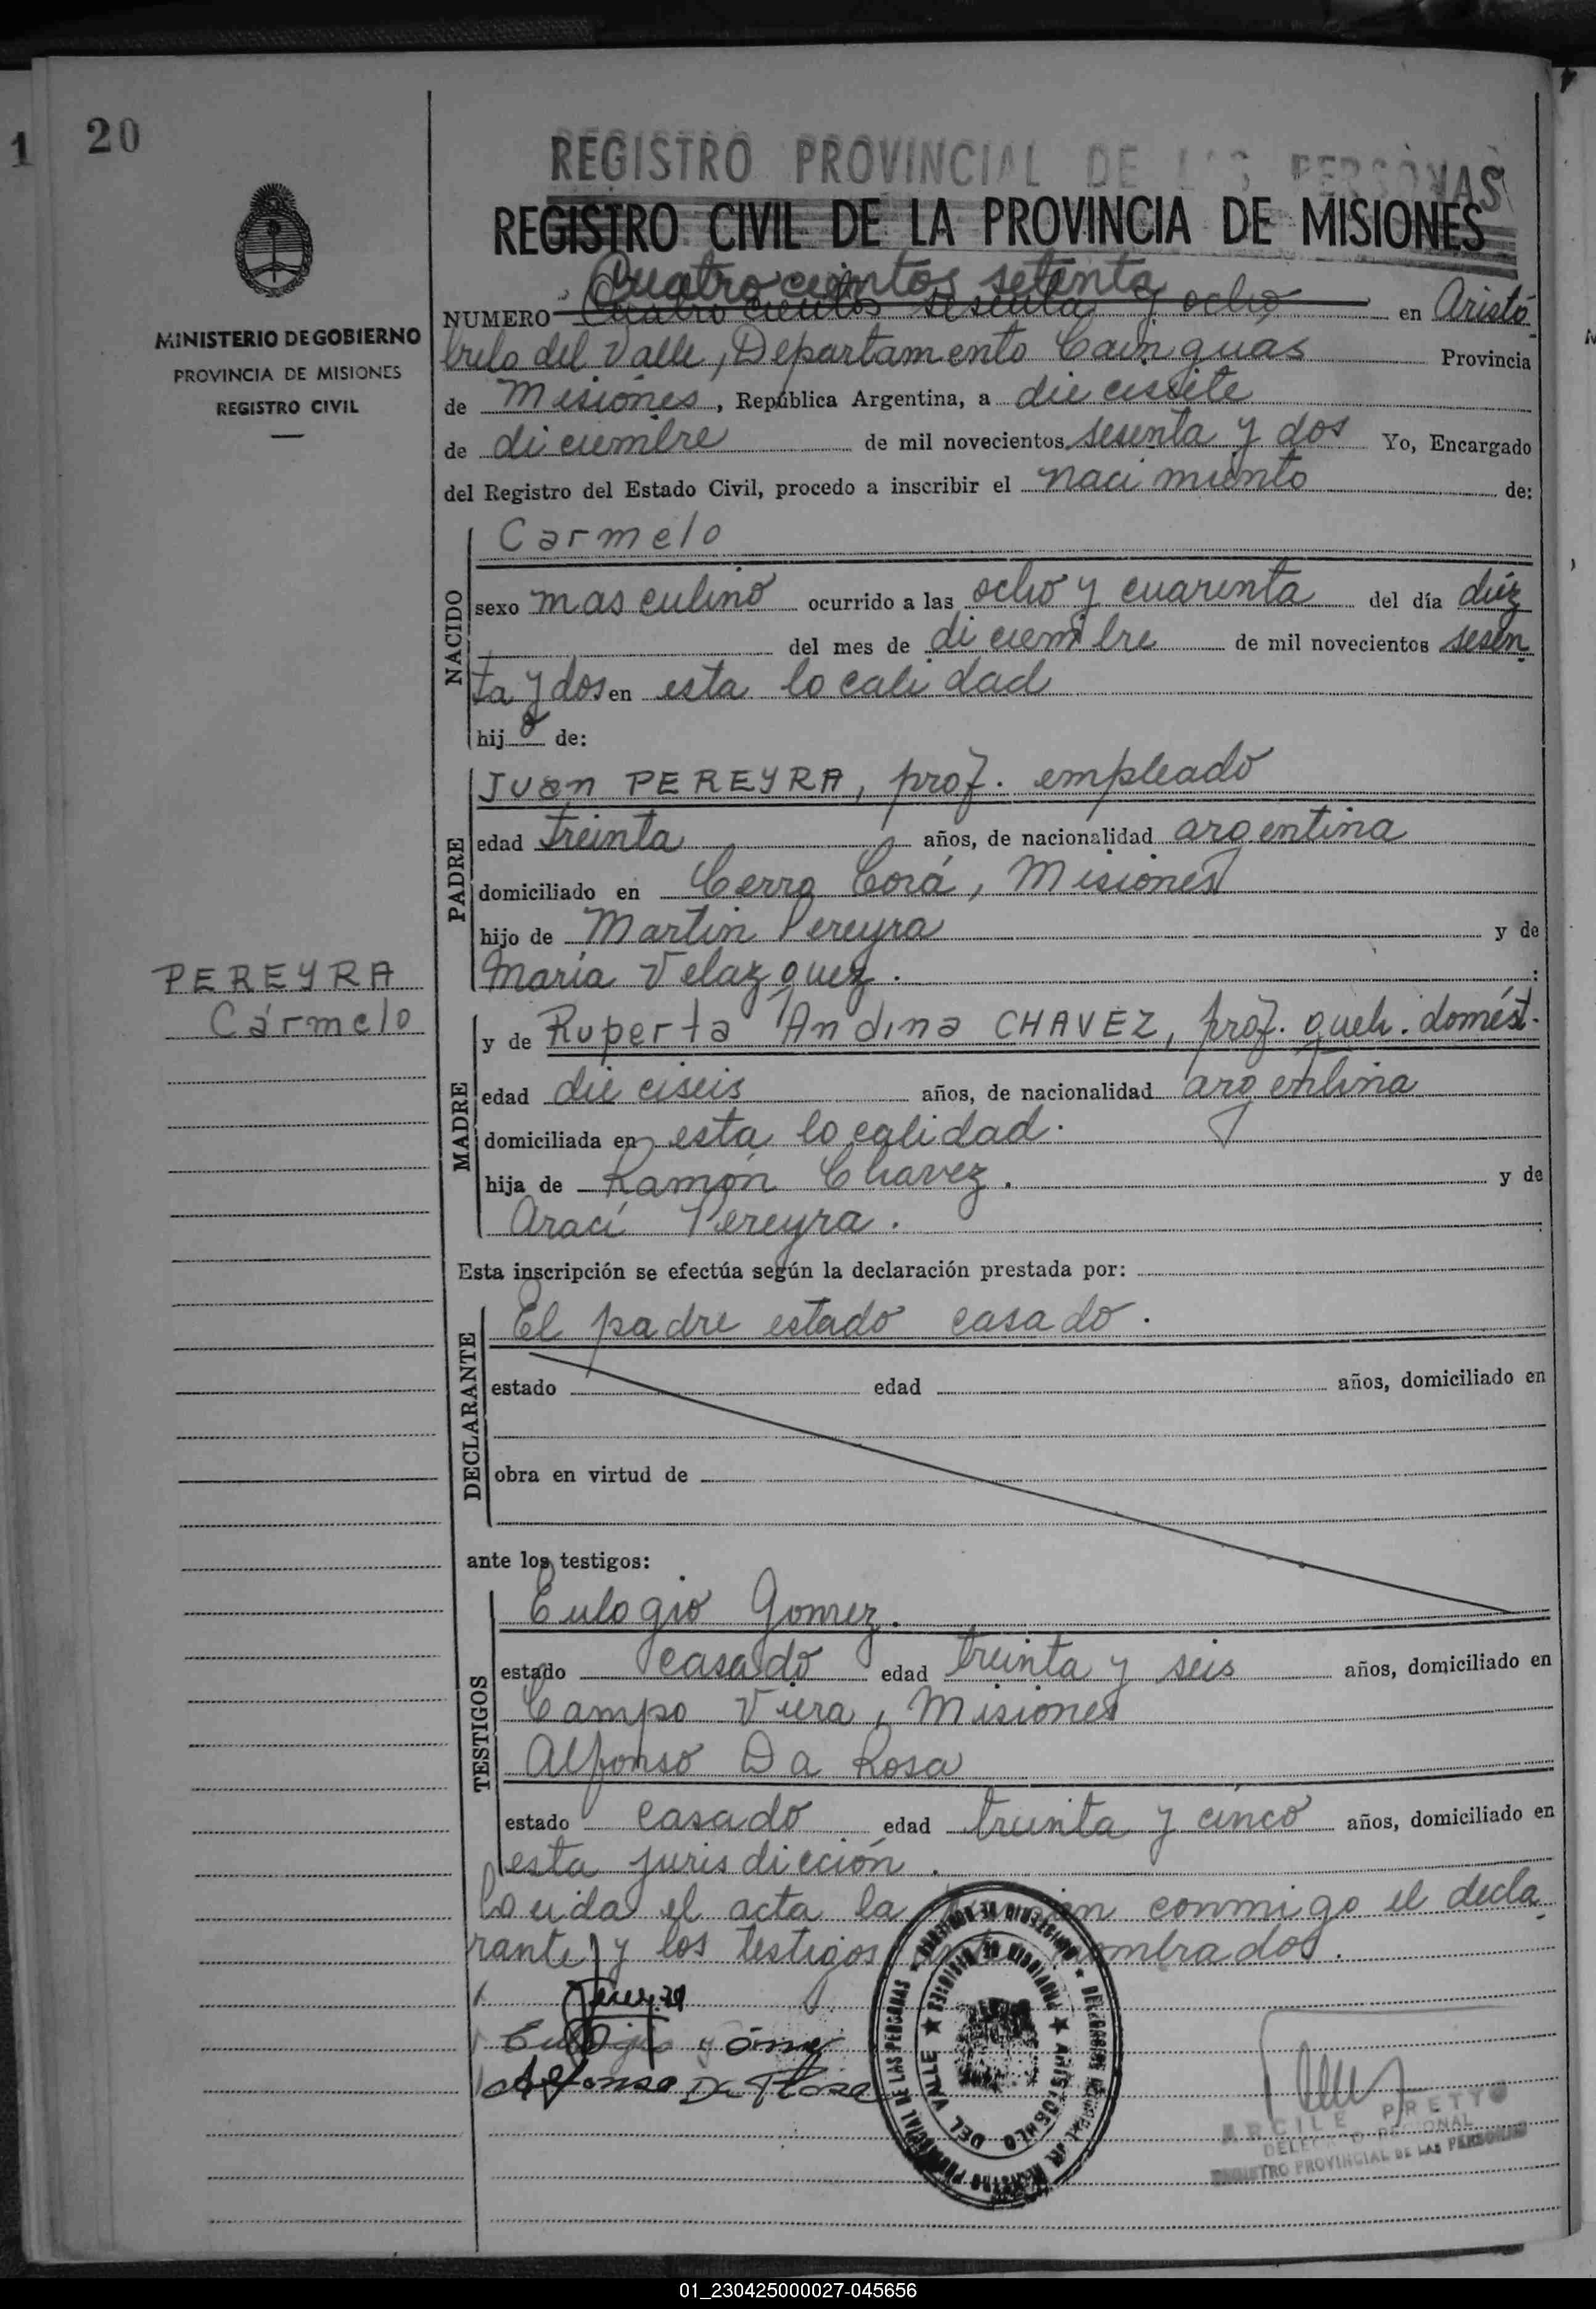 1 20
REGISTRO PROVINCIAL DE LAS PERSONAS
REGISTRO CIVIL DE LA PROVINCIA DE MISIONES
Cuatro cientos setenta
NUMERO Cuatro cientos sesenta y ocho en Aristó
bulo del Valle, Departamento Cainguás Provincia
de Misiones, República Argentina, a diecisiete
de diciembre de mil novecientos sesenta y dos Yo, Encargado
del Registro del Estado Civil, procedo a inscribir el nacimiento de:
MINISTERIO DE GOBIERNO
PROVINCIA DE MISIONES
REGISTRO CIVIL
NACIDO
Carmelo
sexo masculino ocurrido a las ocho y cuarenta del día diéz
del mes de diciembre de mil novecientos sesen
ta y dos en esta localidad
hijo de:
PADRE
Juan PEREYRA, prof. empleado
edad treinta años, de nacionalidad argentina
domiciliado en Cerro Corá, Misiones
hijo de Martin Pereyra y de
María Velazquez.
PEREYRA
Carmelo
MADRE
y de Ruperta Andina CHAVEZ, prof. queh. domést.
edad dieciseis años, de nacionalidad argentina
domiciliada en esta localidad.
hija de Ramón Chavez. y de
Aracì Pereyra.
Esta inscripción se efectúa según la declaración prestada por:
DECLARANTE
El padre estado casado.
estado edad años, domiciliado en
obra en virtud de
ante los testigos:
TESTIGOS
Eulogio Gomez.
estado casado edad treinta y seis años, domiciliado en
Campo Viera, Misiones
Alfonso Da Rosa
estado casado edad treinta y cinco años, domiciliado en
esta jurisdicción.
Leida el acta la conmigo el decla
rante y los testigos nombrados.
Eulogio Gómez
Alfonso Da Rosa
REGISTRO PROVINCIAL DE LAS PERSONAS
ARISTOBULO DEL VALLE
ARCILE PRETTO
DELEGADO REGIONAL
REGISTRO PROVINCIAL DE LAS PERSONAS
01_230425000027-045656